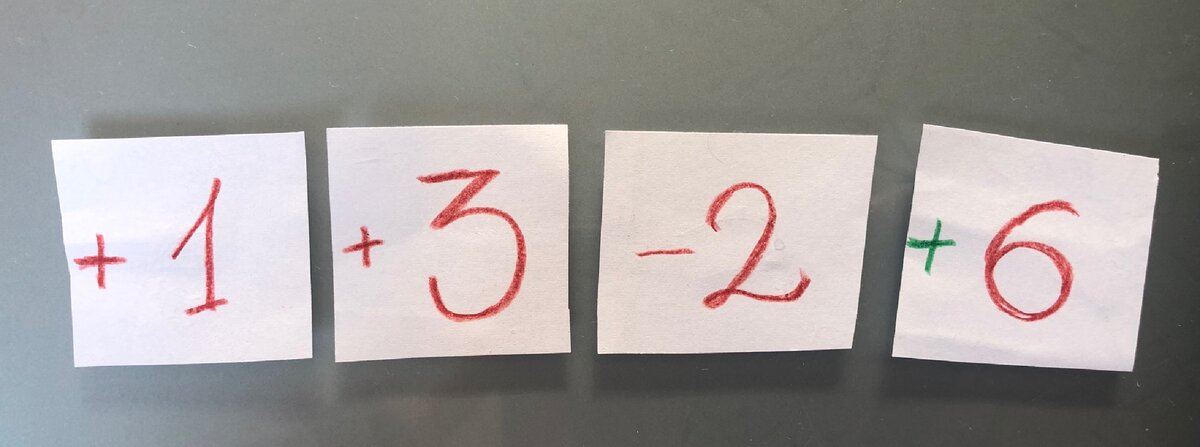 +1 +3 -2 +6